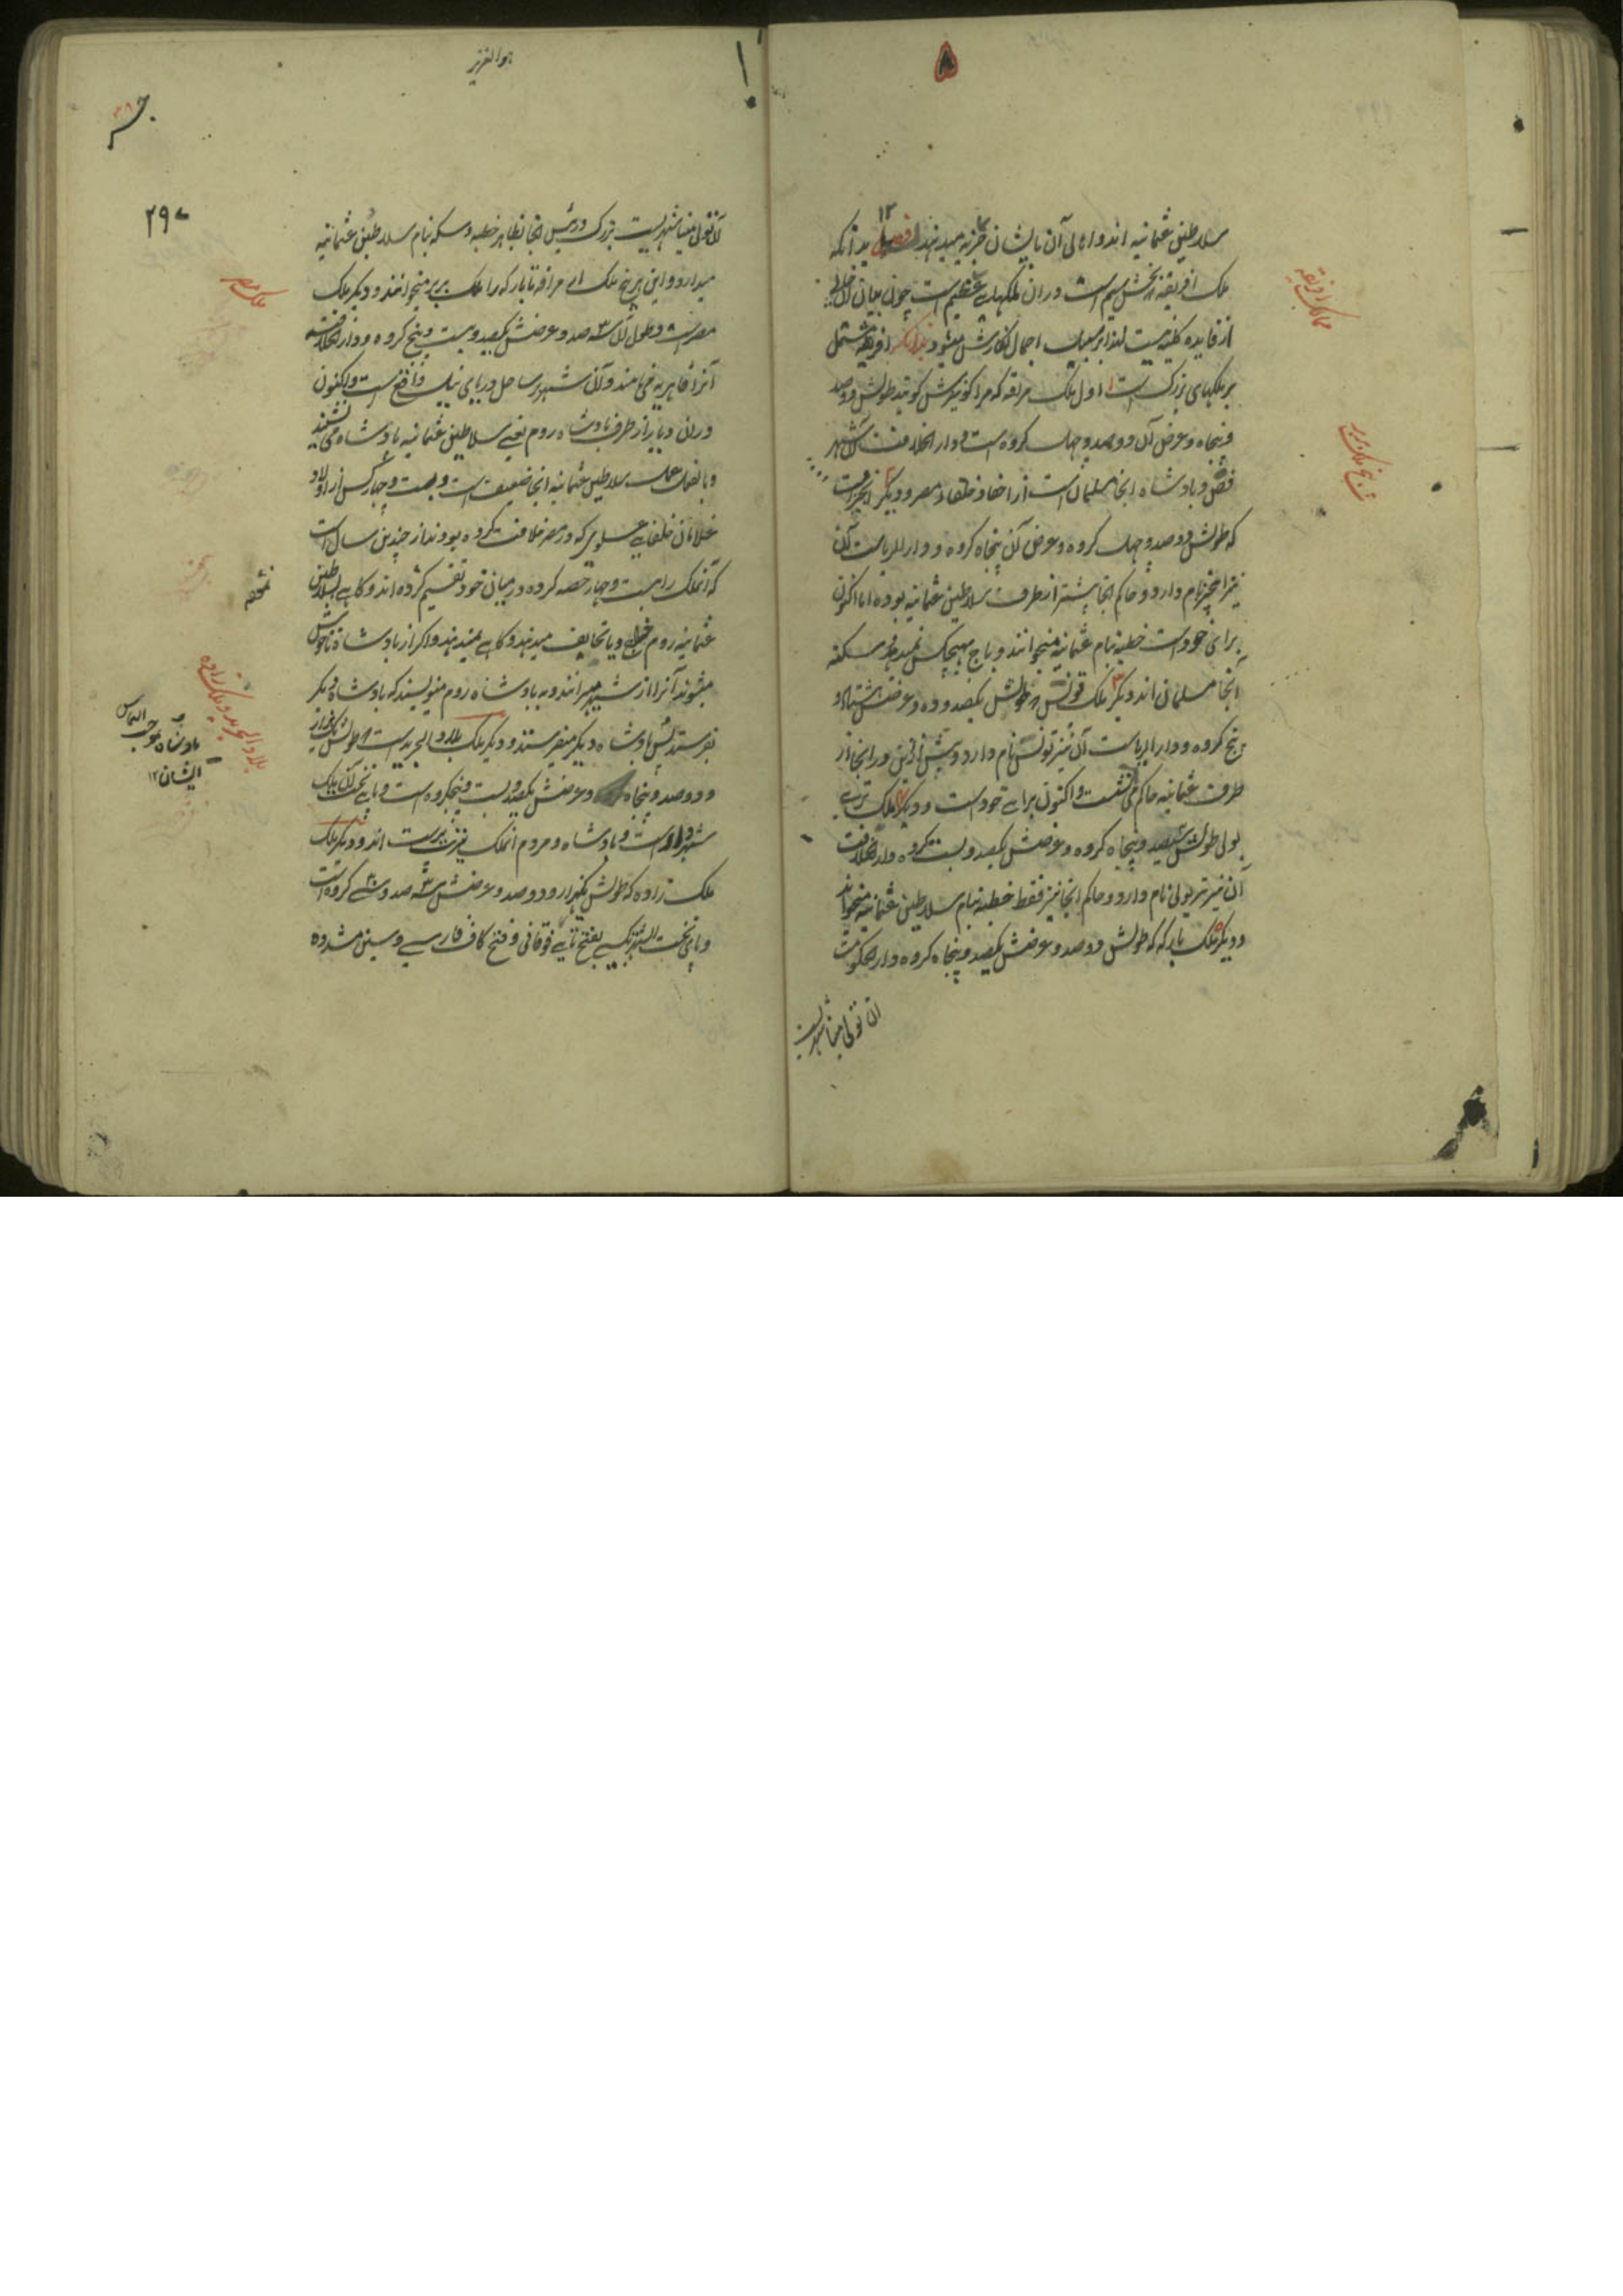 سلاطین عثمانیه اند و اهالی آن بایشان جزیه میدهند فصل ۱۲ بدانکه
ملک افریقه بخش سیم است و در ان ملکهای عظیم است چون بیان آن خالی
از فایده کلیه نیست لهذا بر سبیل اجمال نگارش میشود بدانکه افریقه مشتمل
بر ملکهای بزرگ است ۱ اول ملک مراقه که مراکو نیزش گویند طولش دوصد
و پنجاه و عرض آن دوصد و چهل کروه است و دار الخلافت آن شهر
و پادشاه انجا مسلمان است از احفاد خلفاء مصر و دیگر ۲
که طولش دوصد و چهل کروه و عرض آن پنجاه کروه و دار الریاست آن
نیز نام دارد و حاکم انجا پیشتر از طرف سلاطین عثمانیه بوده اما اکنون
برای خود است خطبه بنام عثمانیه میخوانند و باج بهیچکس نمیدهد سکنه
آنجا مسلمان اند و دیگر ۳ ملک تونس که طولش یکصد و ده و عرضش هشتاد و
پنج کروه و دار الریاست آن نیز تونس نام دارد و پیش ازین در انجا از
طرف عثمانیه حاکم می نشست و اکنون برای خود است و دیگر ۴ ملک تری
پولی طولش سیصد و پنجاه کروه و عرضش یکصد و بست کروه و دار الخلافت
آن نیز تریپولی نام دارد و حاکم انجا نیز فقط خطبه بنام سلاطین عثمانیه میخواند
و دیگر ۵ ملک بارکه که طولش دوصد و عرضش یکصد و پنجاه کروه و دار الحکومت
ممالک افریقه
شرح ملک بربر
هو العزیز
۲۹۷
شهریست بزرگ و رئیس انجا بظاهر خطبه و سکه بنام سلاطین عثمانیه
میدارد و این هر پنج ملک ای مراقه تا بارکه را ملک بربر میخوانند و دیگر ملک
مصر است و طول آن سه صد و عرضش یکصد و بیست و پنج کروه و دار الخلافت
آنرا قاهریه می نامند و آن شهر بر ساحل دریای نیل واقع است و اکنون
در ان دیار از طرف پادشاه روم یعنی سلاطین عثمانیه پادشاه می نشیند
و بالفعل عمل سلاطین عثمانیه انجا ضعیف است و بیست و چهار کس از اولاد
غلامان خلفای علوی که در مصر خلافت کرده بودند از چندین سال است
که آنملک را بست و چهار حصه کرده در میان خود تقسیم کرده اند و گاهی بسلاطین
عثمانیه روم خراج و یا تحایف میدهند و گاهی نمیدهند و اگر از پادشاه ناخوش
میشوند آنرا از شهر میرانند و به پادشاه روم مینویسند که پادشاه دیگر
بفرستد پس پادشاه دیگر میفرستند و دیگر ملک بلاد الجرید است طولش یکهزار
و دوصد و پنجاه و عرضش یکصد و بست و پنجکروه است و پای تخت آن ملک
شهر است و پادشاه و مردم آنملک اند و دیگر ملک
ملک زاوه که طولش یکهزار و دوصد و عرضش سه صد و سی کروه است
و پای تخت بفتح تای فوقانی و فتح کاف فارسی و سین مشدده
ملک مصر
بلاد الجرید و ملک زاوه
پادشاه بموجب التماس
ایشان ۱۲